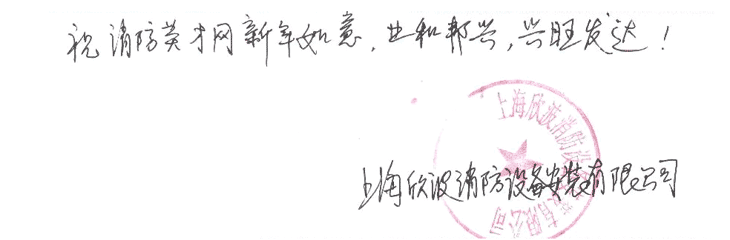 祝消防英才网新年如意，业和邦兴，兴旺发达！
上海欣波消防设
有限公司
上海欣波消防设备安装有限公司